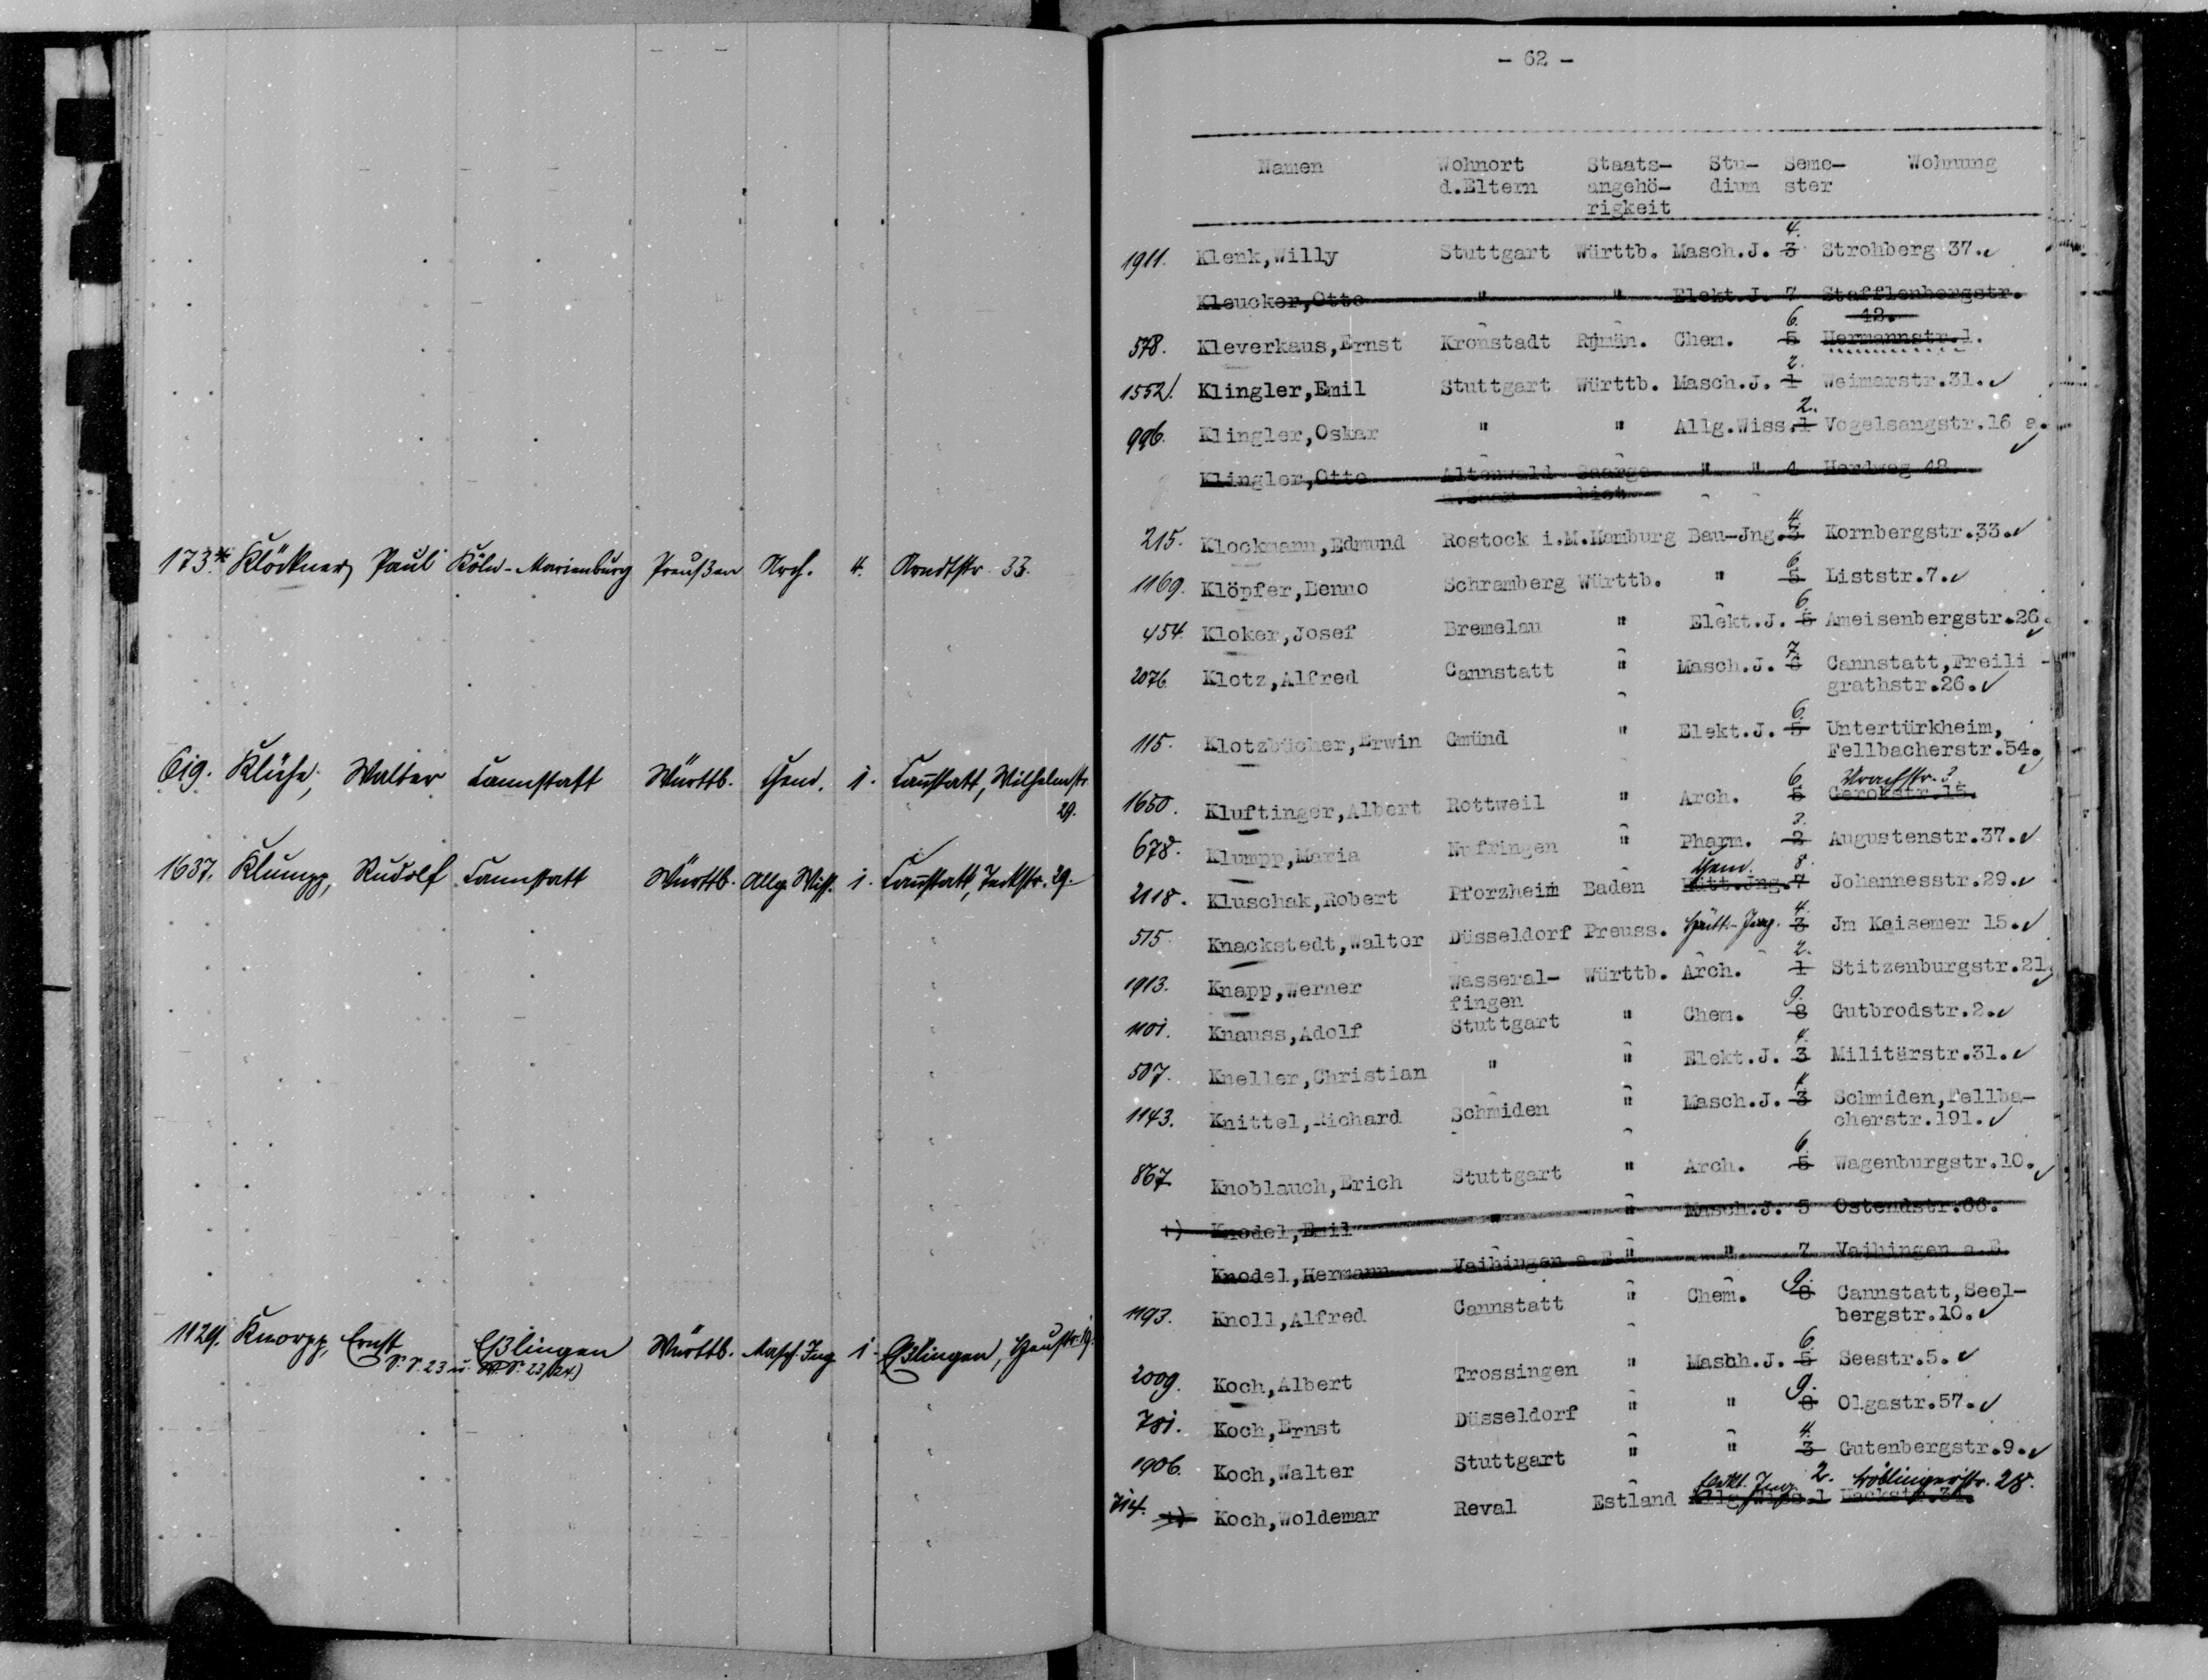 173.* Klöckner, Paul Köln-Marienburg Preußen Arch. 4. Arndtstr. 33.
619. Walter Cannstatt Württb. Chem. 1. Cannstatt, Wilhelmstr.
29.
1637. Klumpp, Rudolf Cannstatt Württb. Allg. Wiss. 1. Cannstatt, Teckstr. 29.
1129. Knorpp, Ernst Eßlingen Württb. Masch. Ing. 1. Eßlingen,
S.S. 23 u. W.S. 23/24)
- 62 -
Namen Wohnort Staats- Stu- Seme- Wohnung
d.Eltern angehö- dium ster
rigkeit
1911. Klenk,Willy Stuttgart Württb. Masch.J. 3 4. Strohberg 37.
Kleucker,Otto " " Elekt.J. 7 Stafflenbergstr.
12.
578. Kleverkaus,Ernst Kronstadt Rumän. Chem. 5 6. Hermannstr.1.
1552. Klingler,Emil Stuttgart Württb. Masch.J. 1 2. Weimarstr.31.
996. Klingler,Oskar " " Allg.Wiss. 1 2. Vogelsangstr.16 a.
Klingler,Otto Altenwald Saarge- " " 4 Herdweg 48
a.Saar biet
215. Klockmann,Edmund Rostock i.M. Hamburg Bau-Jng. 3 4. Kornbergstr.33.
1169. Klöpfer,Benno Schramberg Württb. " 5 6. Liststr.7.
454. Kloker,Josef Bremelau " Elekt.J. 5 6. Ameisenbergstr.26.
2076. Klotz,Alfred Cannstatt " Masch.J. 6 7. Cannstatt,Freili-
grathstr.26.
115. Klotzbücher,Erwin Gmünd " Elekt.J. 5 6. Untertürkheim,
Fellbacherstr.54.
Urachstr. 3.
1650. Kluftinger,Albert Rottweil " Arch. 5 6. Gerokstr.15.
678. Klumpp,Maria Nufringen " Pharm. 2 3. Augustenstr.37.
Chem. 8.
2118. Kluschak,Robert Pforzheim Baden Hütt.Jng. 7 Johannesstr.29.
515. Knackstedt,Walter Düsseldorf Preuss. Hütt.-Jng. 3 4. Jm Kaisemer 15.
1913. Knapp,Werner Wasseral- Württb. Arch. 1 2. Stitzenburgstr.21.
fingen
1101. Knauss,Adolf Stuttgart " Chem. 8 9. Gutbrodstr.2.
507. Kneller,Christian " " Elekt.J. 3 4. Militärstr.31.
1143. Knittel,Richard Schmiden " Masch.J. 3 4. Schmiden,Fellba-
cherstr.191.
867. Knoblauch,Erich Stuttgart " Arch. 5 6. Wagenburgstr.10.
1) Knodel,Emil " " Masch.J. 5 Ostendstr.66.
Knodel,Hermann Vaihingen a.E. " " 7 Vaihingen a.E.
1193. Knoll,Alfred Cannstatt " Chem. 8 9. Cannstatt,Seel-
bergstr.10.
2009. Koch,Albert Trossingen " Masch.J. 5 6. Seestr.5.
781. Koch,Ernst Düsseldorf " " 8 9. Olgastr.57.
1906. Koch,Walter Stuttgart " " 3 4. Gutenbergstr.9.
Elekt. Jng. 2. Böblingerstr. 28.
714. 1) Koch,Woldemar Reval Estland Allg.Wiss.1 Hackstr.34.